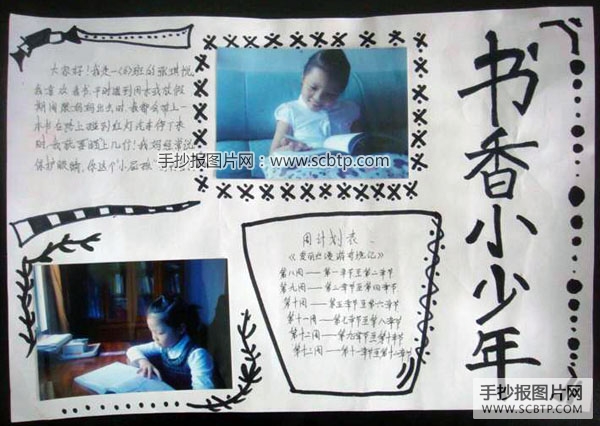 书香小少年
大家好!我是一(8)班的张琪悦。
我喜欢看书,平时遇到周末或放假
期间跟妈妈出去时,我都会带上一
本书在路上碰到红灯汽车停了下来
时,我就要看上几行!我妈经常说
保护眼睛,你这个小屁孩
周计划表
《爱丽丝漫游奇境记》
第八周——第一章节至第二章节
第九周——第三章节至第四章节
第十周——第五章节至第六章节
第十一周——第七章节至第八章节
第十二周——第九章节至第十章节
第十三周——第十一章节至第十二章节
手抄报图片网:www.scbtp.com
手抄报图片网
WWW.SCBTP.COM